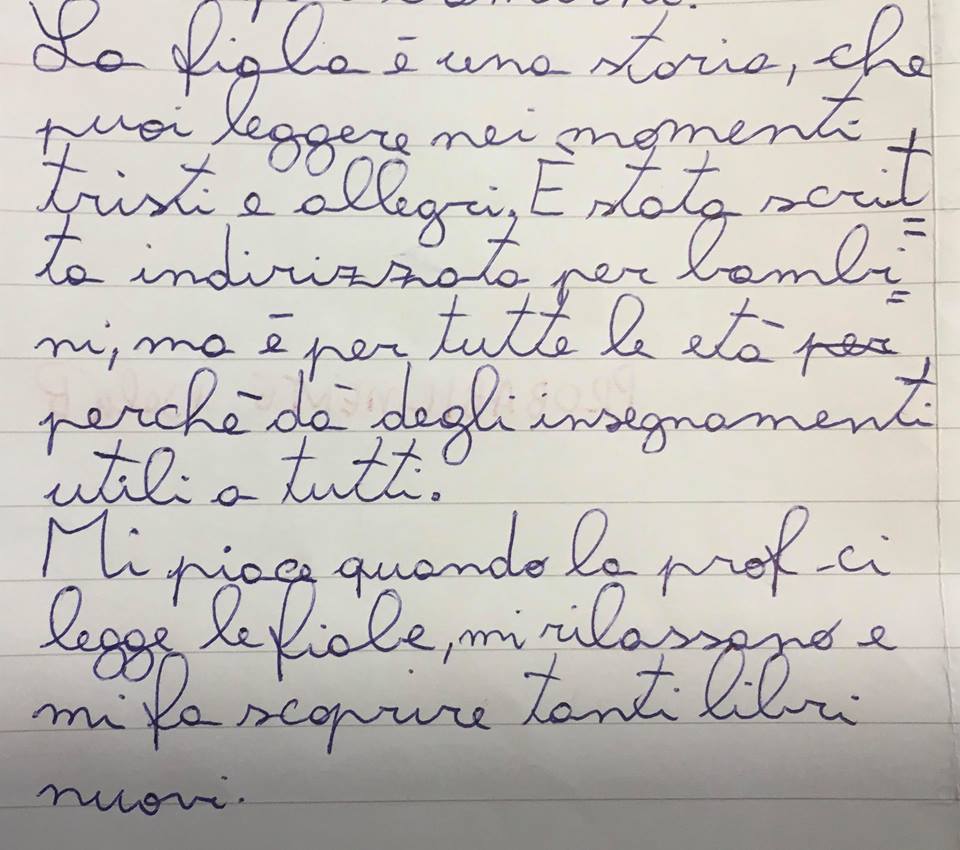 La fiaba è una storia, che
puoi leggere nei momenti
tristi e allegri. È stata scrit=
ta indirizzata per bambi=
ni, ma è per tutte le età per
perchè dà degli insegnamenti
utili a tutti.
Mi piace quando la prof. ci
legge le fiabe, mi rilassano e
mi fa scoprire tanti libri
nuovi.